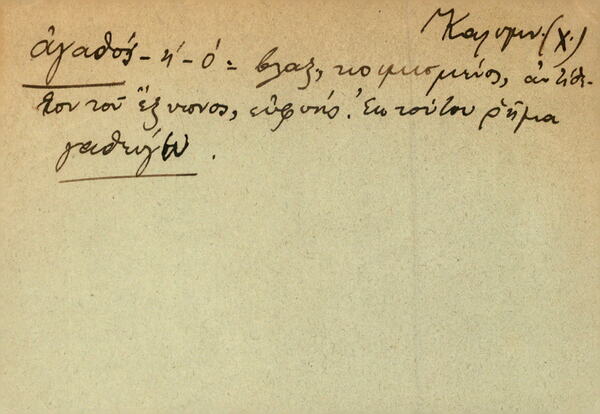 Καλυμν. (χ.)
ἀγαθός -ή -ό = βλάξ, κοιμισμένος, ἀντίθε-
τον τοῦ ἔξυπνος, εὐφυής. Ἐκ τούτου ρῆμα
γαθεύγω.